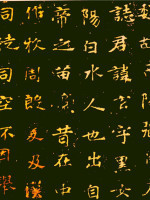 誌君諱玄字黑女
陽白水人也出自
帝之苗裔昔在中
作牧周殷爰及漢
司徒司空不因舉